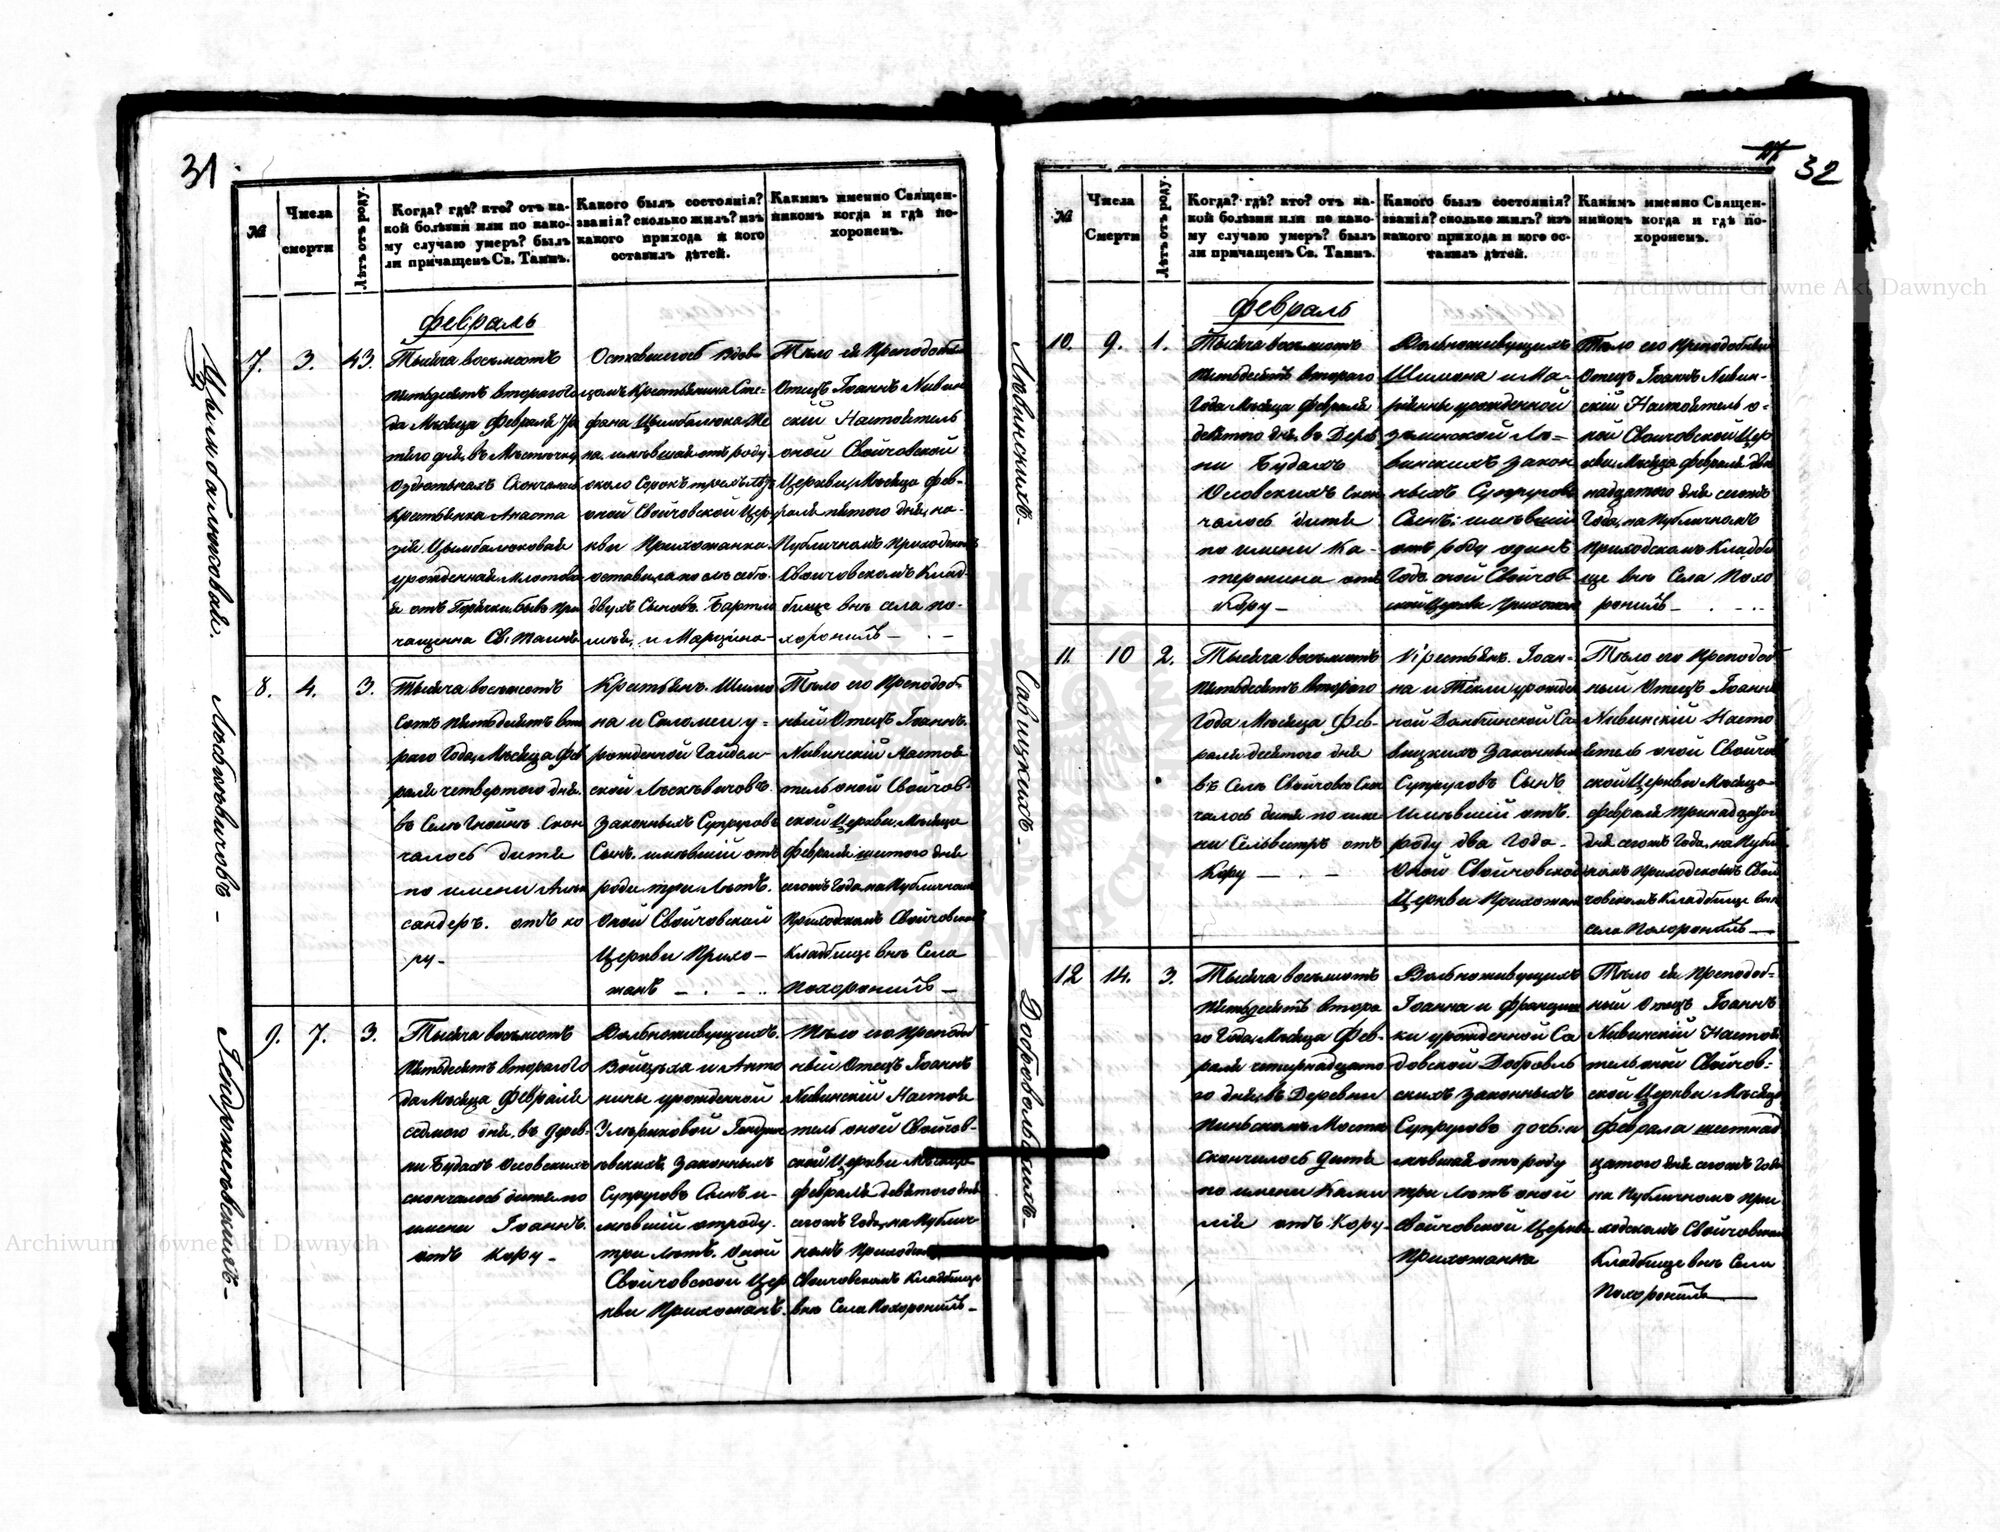 31
№
Числа смерти
Лѣтъ отъ роду.
Когда? гдѣ? кто? отъ ка-
кой болѣзни или по како-
му случаю умеръ? былъ
ли причащенъ Св. Таинъ.
Какого былъ состоянія?
званія? сколько жилъ? изъ
какого прихода и кого
оставилъ дѣтей.
Какимъ именно Священ-
никомъ когда и гдѣ по-
хоронен.
Февраль
Цымбалюковай.
7. 3. 43.
Тысяча восемьсотъ
пятьдесятъ втораго Го
да Мѣсяца Февраля Тре
тяго дня, въ Мѣстечку
Скончалась
крестьянка Анаста
зія Цымбалюковая
урожденная
я отъ Горячки. бывъ при
чащенна Св: Таинъ
Оставшегось вдов
цомъ Крестьянина Сте-
фана Цымбалюка Же
на. имѣвшая отъ роду
около Сорокъ трехъ лѣтъ
оной Свойчовской Цер
кви Прихожанка.
оставила по съ себѣ
двухъ Сыновъ. Бартло
мѣя, и Марцина-
Тѣло ей Преподобный
Отецъ Іоаннъ Нивин
скій Настоятель
оной Свойчовской
Церкви, Мѣсяца Фев-
раля пятого дня, на-
Публичномъ Приходскомъ
Свойчовскомъ Клад-
бище внѣ села по-
хоронилъ —
Лѣскѣвичовъ -
8. 4. 3.
Тысяча восемсотъ
Сотъ пятьдесятъ вто
раго Года, Мѣсяца Фев
раля четвертого дня.
въ Селѣ Гнойнѣ Скон
чалось дитя
по имени Алек
сандеръ. отъ ко
ру-
Крестьянъ. Шимо
на и Саломеи у-
рожденной Гайдем-
ской Лѣскѣвичовъ.
Законныхъ Супруговъ
Сынъ. имѣвшій отъ
роди три Лѣтъ.
Оной Свойчовской
Церкви Прихо-
жанъ —
Тѣло его Преподоб-
ный Отецъ Іоаннъ.
Нивинскій Настоя
тель оной Свойчов-
ской Церкви, Мѣсяца
Февраля шестого дня
сегожъ Года, на Публичномъ
Приходскомъ Свойчовскомъ
Кладбище внѣ Села
Похоронилъ —
9. 7. 3.
Тысяча восемсотъ
Пятьдесятъ втораго Го
да Мѣсяца Февраля
седмого дня, въ дерев-
ни Будахъ Осовскихъ
скончалось дитя по
имени Іоаннъ.
отъ кору -
Вольноживущихъ.
Войцѣха и Анто
нины урожденной
Законныхъ
Супруговъ Сынъ и-
мѣвшій отроду.
три Лѣтъ. Оной
Свойчовской Цер
кви Прихожанъ.
Тѣло его Преподоб
ный Отецъ Іоаннъ
Нивинскій Настоя
тель оной Свойчов-
ской Церкви Мѣсяца
февраля девятого дня
сегожъ Года, на Публич-
номъ Приходскомъ
Свойчовскомъ Кладбище
внѣ Села Похоронилъ -
32
№
Числа Смерти
Лѣтъ отъ роду.
Когда? гдѣ? кто? отъ ка-
кой болѣзни или по како-
му случаю умеръ? былъ
ли причащенъ Св. Таинъ.
Какого былъ состоянія?
званія? сколько жилъ? изъ
какого прихода и кого ос-
тавилъ дѣтей.
Какимъ именно Священ-
никомъ когда и гдѣ по-
хоронен.
Февраль
Любинскихъ -
10. 9. 1.
Тысяча восемсотъ
пятьдесятъ втораго
Года Мѣсяца Февраля
девятого дня, въ Дерев
ни Будахъ
Осовскихъ Скон
чалось дитя
по имени Ка-
тержина отъ
Кору -
Вольноживущихъ
Шимона и Ма-
ріянны урожденной
Лю-
бинскихъ Закон
ныхъ Супруговъ
Сынъ; имѣвшій
отъ роду одинъ
Годъ оной Свойчов-
ской Церкви Прихожан
Тѣло его Преподобный
Отецъ Іоаннъ Нивин-
скій Настоятель о-
ной Свойчовской Цер
кви, Мѣсяца Февраля два
надцатого дня сегожъ
Года, на Публичномъ
Приходскомъ Кладби
ще внѣ Села Похо
ронилъ —
Савицкихъ -
11. 10 2.
Тысяча восемсотъ
Пятьдесятъ второго
Года Мѣсяца Фев-
раля десятого дня
въ Селѣ Свойчовѣ Скон
чалось дитя по име
ни Сельвестръ отъ
Кору —
Крестьянъ. Іоан-
на и Текли урожден
ной Дамбинской Са
вицкихъ Законныхъ
Супруговъ Сынъ
Имѣвшій отъ.
роду два Года-
Оной Свойчовской
Церкви Прихожан
Тѣло его Преподоб
ный Отецъ Іоаннъ
Нивинскій Насто
ятель оной Свойчов
ской Церкви Мѣсяца-
февраля тринадцатого
дня сегожъ Года, на Публи
чномъ Приходскомъ Свой
човскомъ Кладбище внѣ
села Похоронилъ —
Добровольскихъ -
12 14. 3.
Тысяча восемсотъ
Пятьдесятъ втора
го Года, Мѣсяца Фев-
раля четырнадцато
го дня, въ Деревни
Пинскомъ Мостку
Скончилось дитя
по имени Ками
лія отъ Кору -
Вольноживущихъ
Іоанна и Францишк
ки урожденной Са
довской Добровль
скихъ Законныхъ
Супруговъ дочь: и
мѣвшая отъ роду
три Лѣтъ оной
Свойчовской Церкви
Прихожанка
Тѣло ей Преподоб-
ный Отецъ Іоаннъ
Нивинскій Настоя
тель оной Свойчов-
ской Церкви Мѣсяца
Феврала шестнад
цатого дня сегожъ Года
на Публичномъ При
ходскомъ Свойчовскомъ
Кладбище внѣ Села
Похоронилъ —
Archiwum Główne Akt Dawnych
Archiwum Główne Akt Dawnych